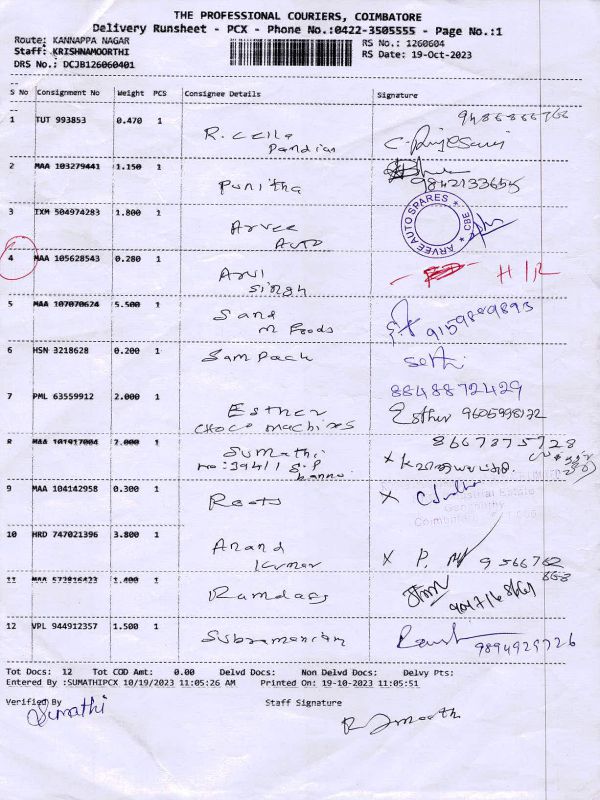 THE PROFESSIONAL COURIERS, COIMBATORE
Delivery Runsheet - PCX - Phone No.:0422-3505555 - Page No.:1
Route: KANNAPPA NAGAR RS No.: 1260604
Staff: KRISHNAMOORTHI RS Date: 19-Oct-2023
DRS No.: DCJB126060401
S No Consignment No Weight PCS Consignee Details Signature
1 TUT 993853 0.470 1
Pandian
2 MAA 103279441 1.150 1
Punitha 9842133655
3 IXM 504974283 1.800 1
Arvee
Auto
ARVEE AUTO SPARES * CBE *
4 MAA 105628543 0.280 1
Arul
Singh
5 MAA 107070624 5.500 1
Sand
m Foods
6 HSN 3218628 0.200 1
Sam pack
8848872429
7 PML 63559912 2.000 1
Esther Esther
choco machines
8 MAA 101917004 2.000 1
Sumathi 8667375728
No: 394/1 S.P
9 MAA 104142958 0.300 1
Roots X
Industrial Estate
10 HRD 747021396 3.800 1
Anand X P.
Kumar 9566762
11 MAA 572816423 1.400 1
Ramdass
12 VPL 944912357 1.500 1
Subramaniam 9894929726
Tot Docs: 12 Tot COD Amt: 0.00 Delvd Docs: Non Delvd Docs: Delvy Pts:
Entered By :SUMATHIPCX 10/19/2023 11:05:26 AM Printed On: 19-10-2023 11:05:51
Verified By Staff Signature
Sumathi